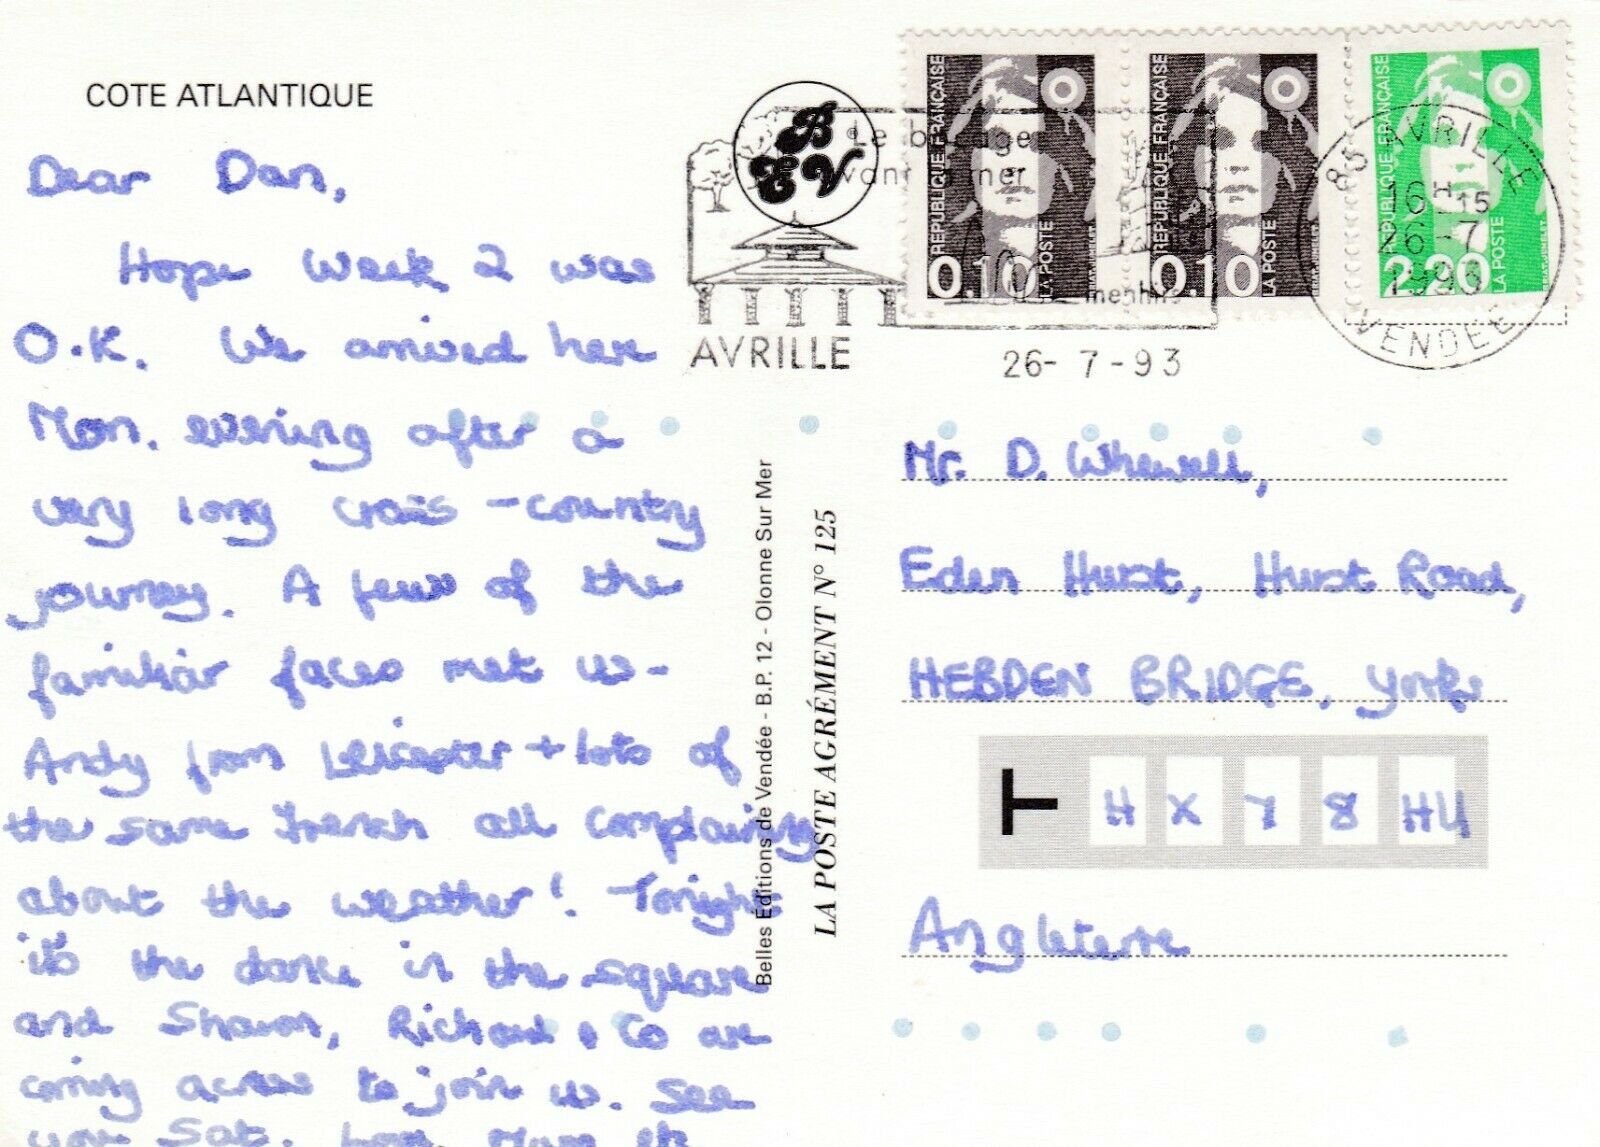 COTE ATLANTIQUE
Dear Dan,
Hope Week 2 was
O.K. We arrived here
Mon. evening after a
very long cross-country
journey. A few of the
familiar faces met us-
Andy from Leicester + lots of
the same French all complaining
about the weather! Tonight
it's the dance in the square
and Sharon, Richard & Co are
coming across to join us. See
you Sat. Love, Mum
Belles Éditions de Vendée - B.P. 12 - Olonne Sur Mer
LA POSTE AGRÉMENT N° 125
B
V
Le bocage
menhirs
AVRILLE
26-7-93
REPUBLIQUE FRANÇAISE
0.10
LA POSTE
REPUBLIQUE FRANÇAISE
0.10
LA POSTE
REPUBLIQUE FRANÇAISE
2.20
LA POSTE
85 AVRILLE
16 H 15
26-7
1993
VENDEE
Mr. D. Whewell,
Eden Hurst, Hurst Road,
HEBDEN BRIDGE, Yorks
H X 7 8 HU
Angleterre